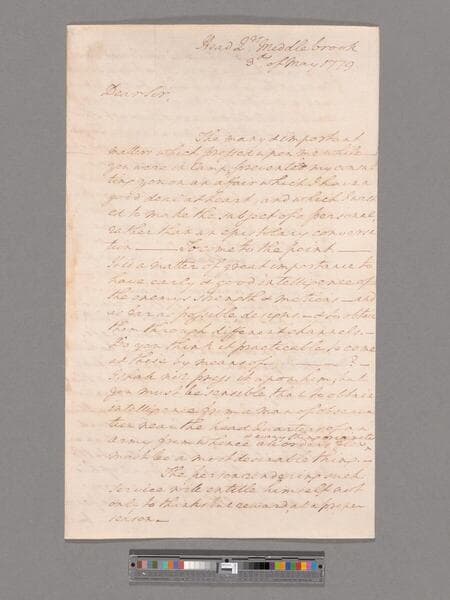 Head Qrs Middlebrook
3d of May 1779
Dear Sir,
The many & important
matters which pressed upon me while
you were in Camp, prevented my consul
ting you on an affair which I have a
good deal at heart, and which I wish
ed to make the subject of a personal
rather than an epistolary conversa
tion ——— To come to the point —
It is a matter of great importance to
have early & good intelligence of
the enemys strength & motions — and
as far as possible, designs — & to obtain
them through different channels. —
Do you think it practicable to come
at these by means of ——— ? —
I shall not press it upon him, but
you must be sensible, that to obtain
intelligence from a man of observa
tion near the head Quarters of an
army from whence all orders flow
& every thing originates
must be a most desirable thing. —
The person rendering such
service will entitle himself not
only to thanks but reward, at a proper
season —